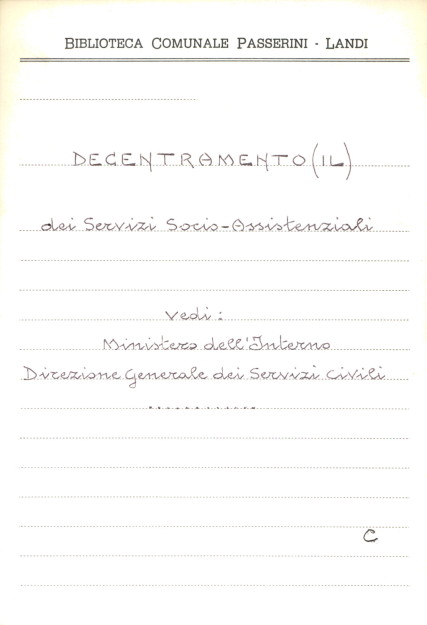 BIBLIOTECA COMUNALE PASSERINI - LANDI
DECENTRAMENTO (IL)
dei Servizi Socio-Assistenziali
Vedi:
Ministero dell'Interno
Direzione Generale dei Servizi Civili
............
C